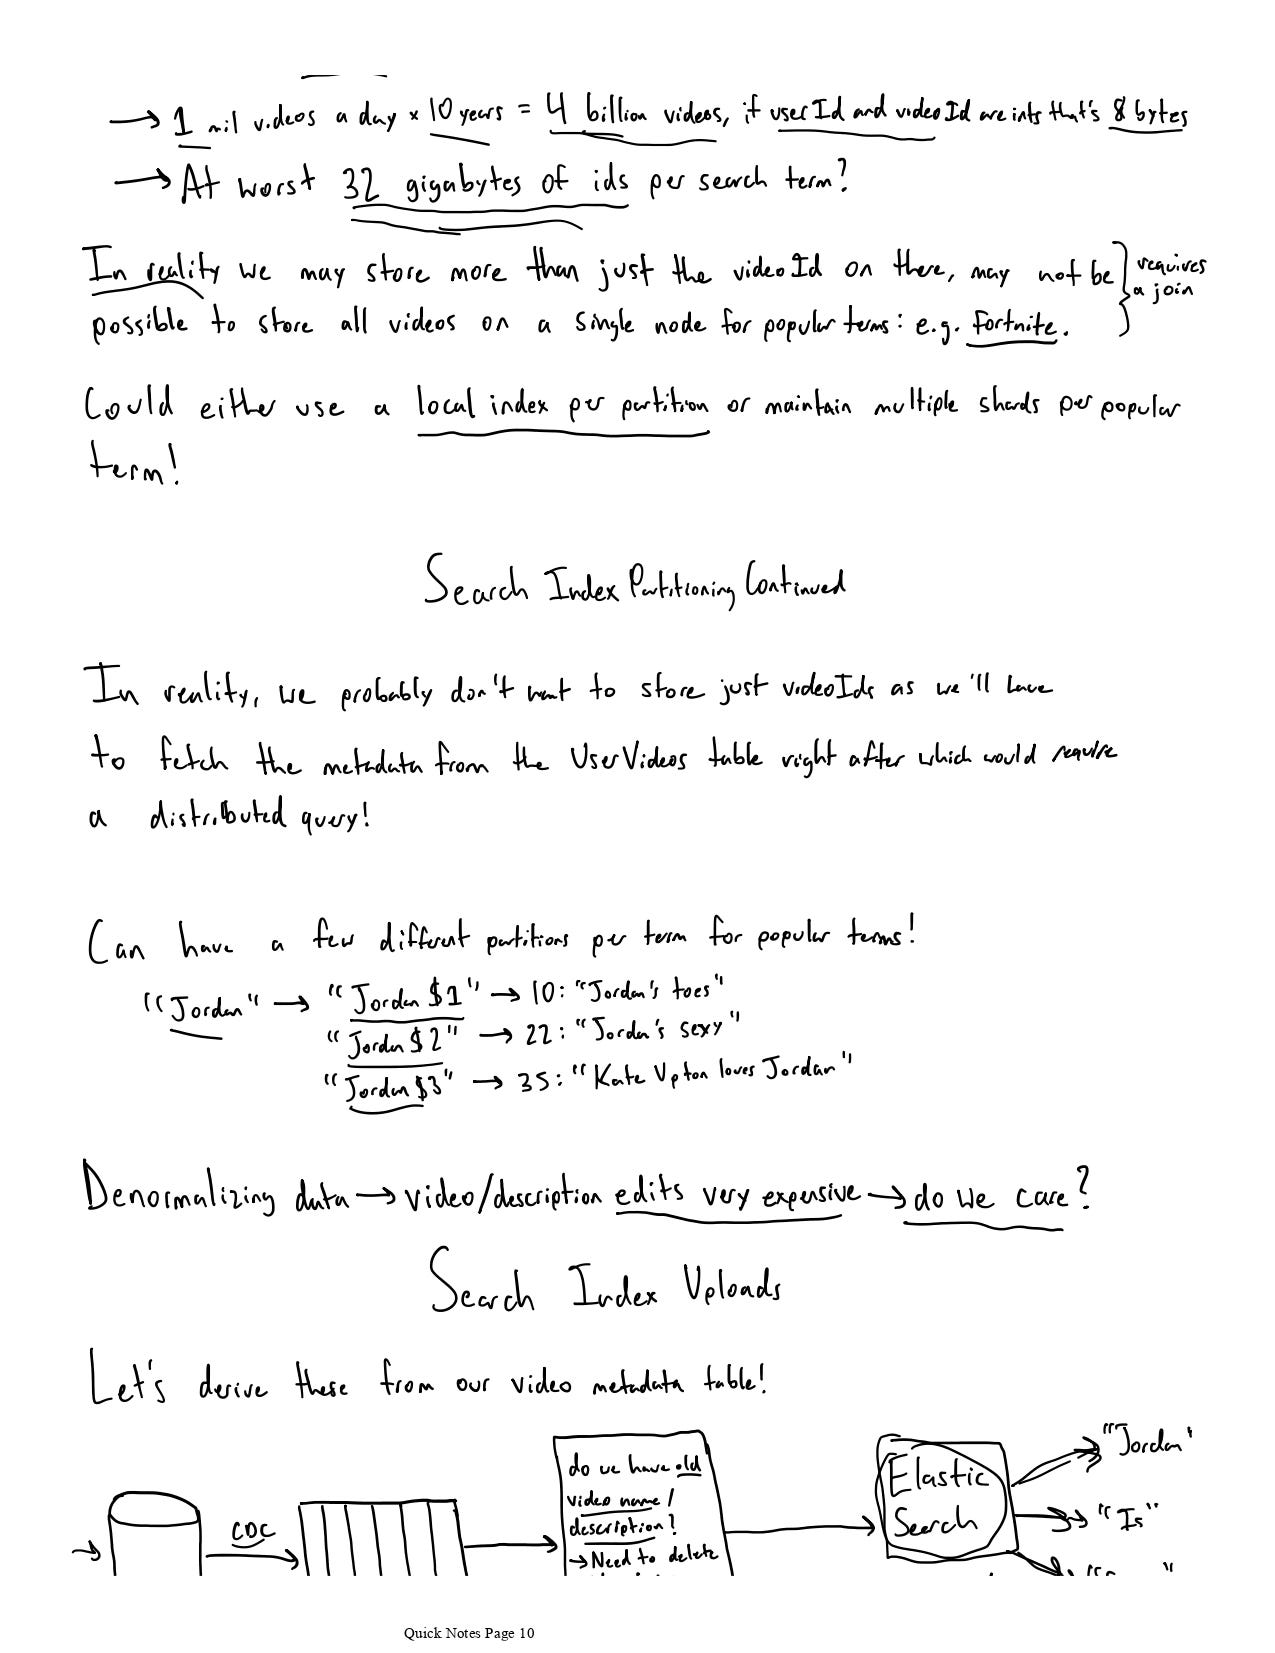 → 1 mil videos a day × 10 years = 4 billion videos, if userId and videoId are ints that's 8 bytes
→ At worst 32 gigabytes of ids per search term?
In reality we may store more than just the videoId on there, may not be } requires a join
possible to store all videos on a single node for popular terms: e.g. Fortnite.
Could either use a local index per partition or maintain multiple shards per popular
term!
Search Index Partitioning Continued
In reality, we probably don't want to store just videoIds as we'll have
to fetch the metadata from the UserVideos table right after which would require
a distributed query!
Can have a few different partitions per term for popular terms!
"Jordan" → "Jordan $1" → 10: "Jordan's toes"
"Jordan $2" → 22: "Jordan's sexy"
"Jordan $3" → 35: "Kate Upton loves Jordan"
Denormalizing data → video/description edits very expensive → do we care?
Search Index Uploads
Let's derive these from our video metadata table!
CDC
do we have old
video name /
description?
→ Need to delete
Elastic
Search
"Jordan"
"Is"
Quick Notes Page 10